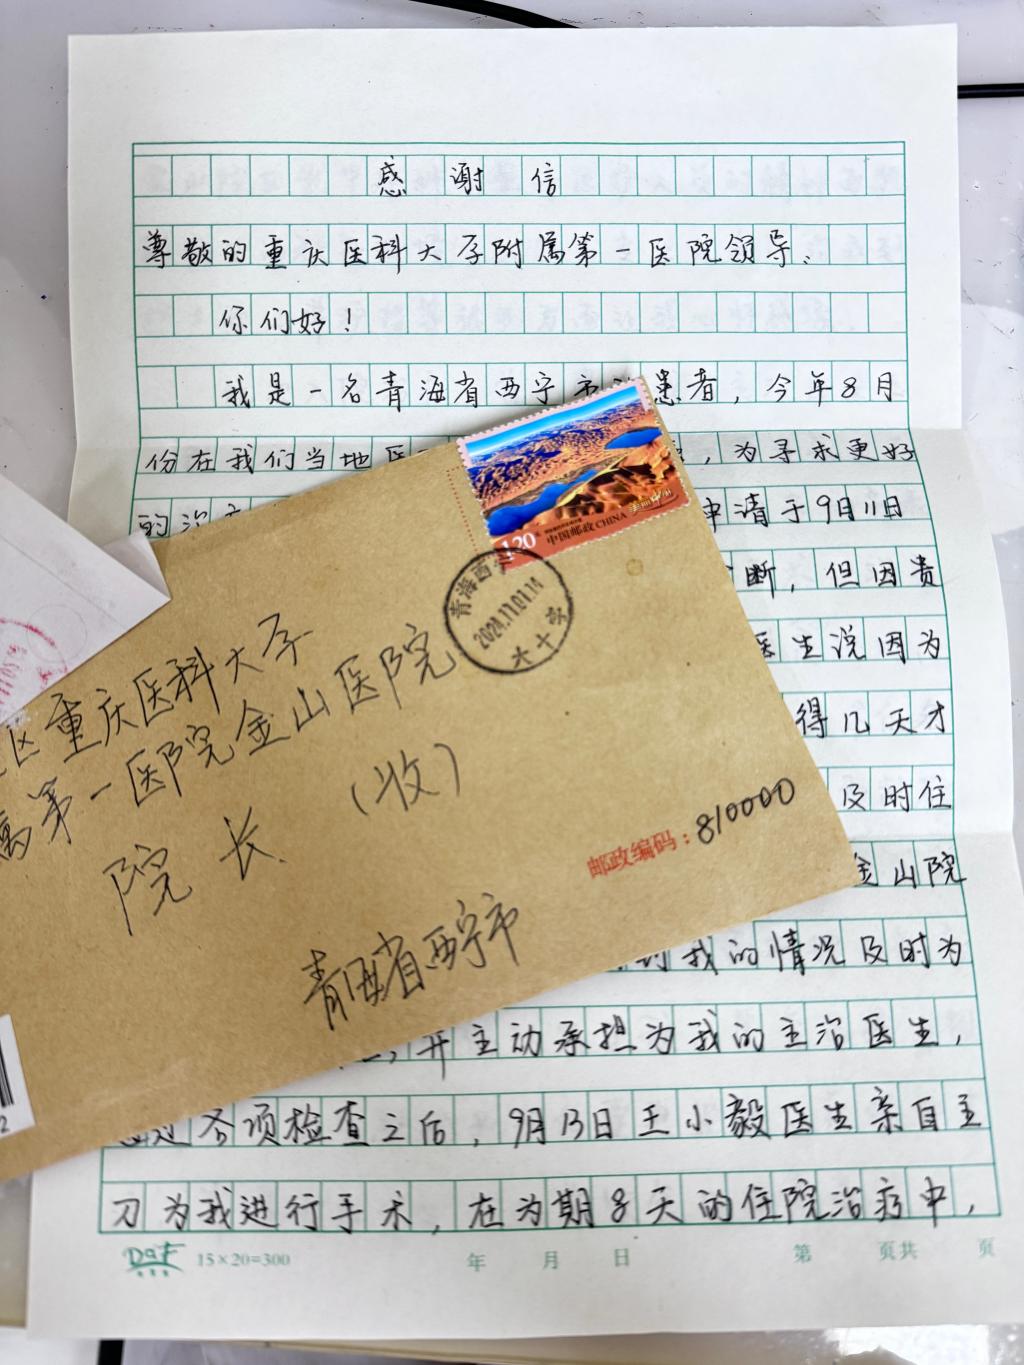 感谢信
尊敬的重庆医科大学附属第一医院领导、
你们好！
我是一名青海省西宁市 患者，今年8月
份在我们当地医 ，为寻求更好
的治 申请于9月11日
断，但因贵
医生说因为
得几天才
及时住
金山院
我的情况及时为
并主动承担为我的主治医生，
各项检查之后，9月13日王小毅医生亲自主
刀为我进行手术，在为期8天的住院治疗中，
15×20=300 年 月 日 第 页共 页
美丽中国
1.20
中国邮政 CHINA
青海西宁
2024.11.01.14
六十
区重庆医科大学
属第一医院金山医院
院长（收）
邮政编码：810000
青海省西宁市